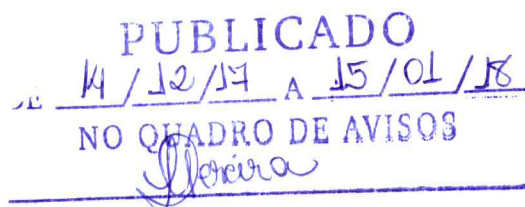 PUBLICADO
DE 14/12/17 A 15/01/18
NO QUADRO DE AVISOS